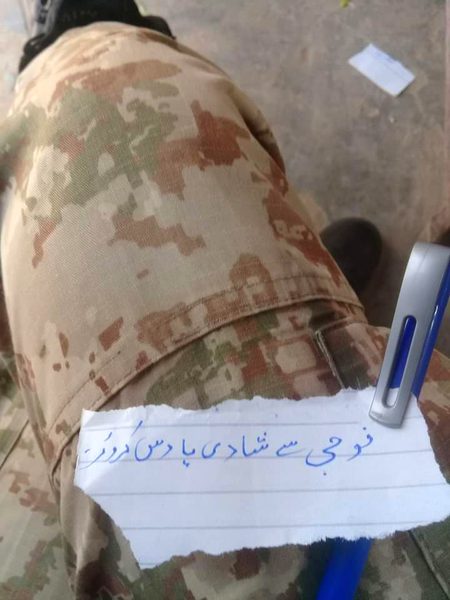 فوجی سے شادی یا دس کروڑ